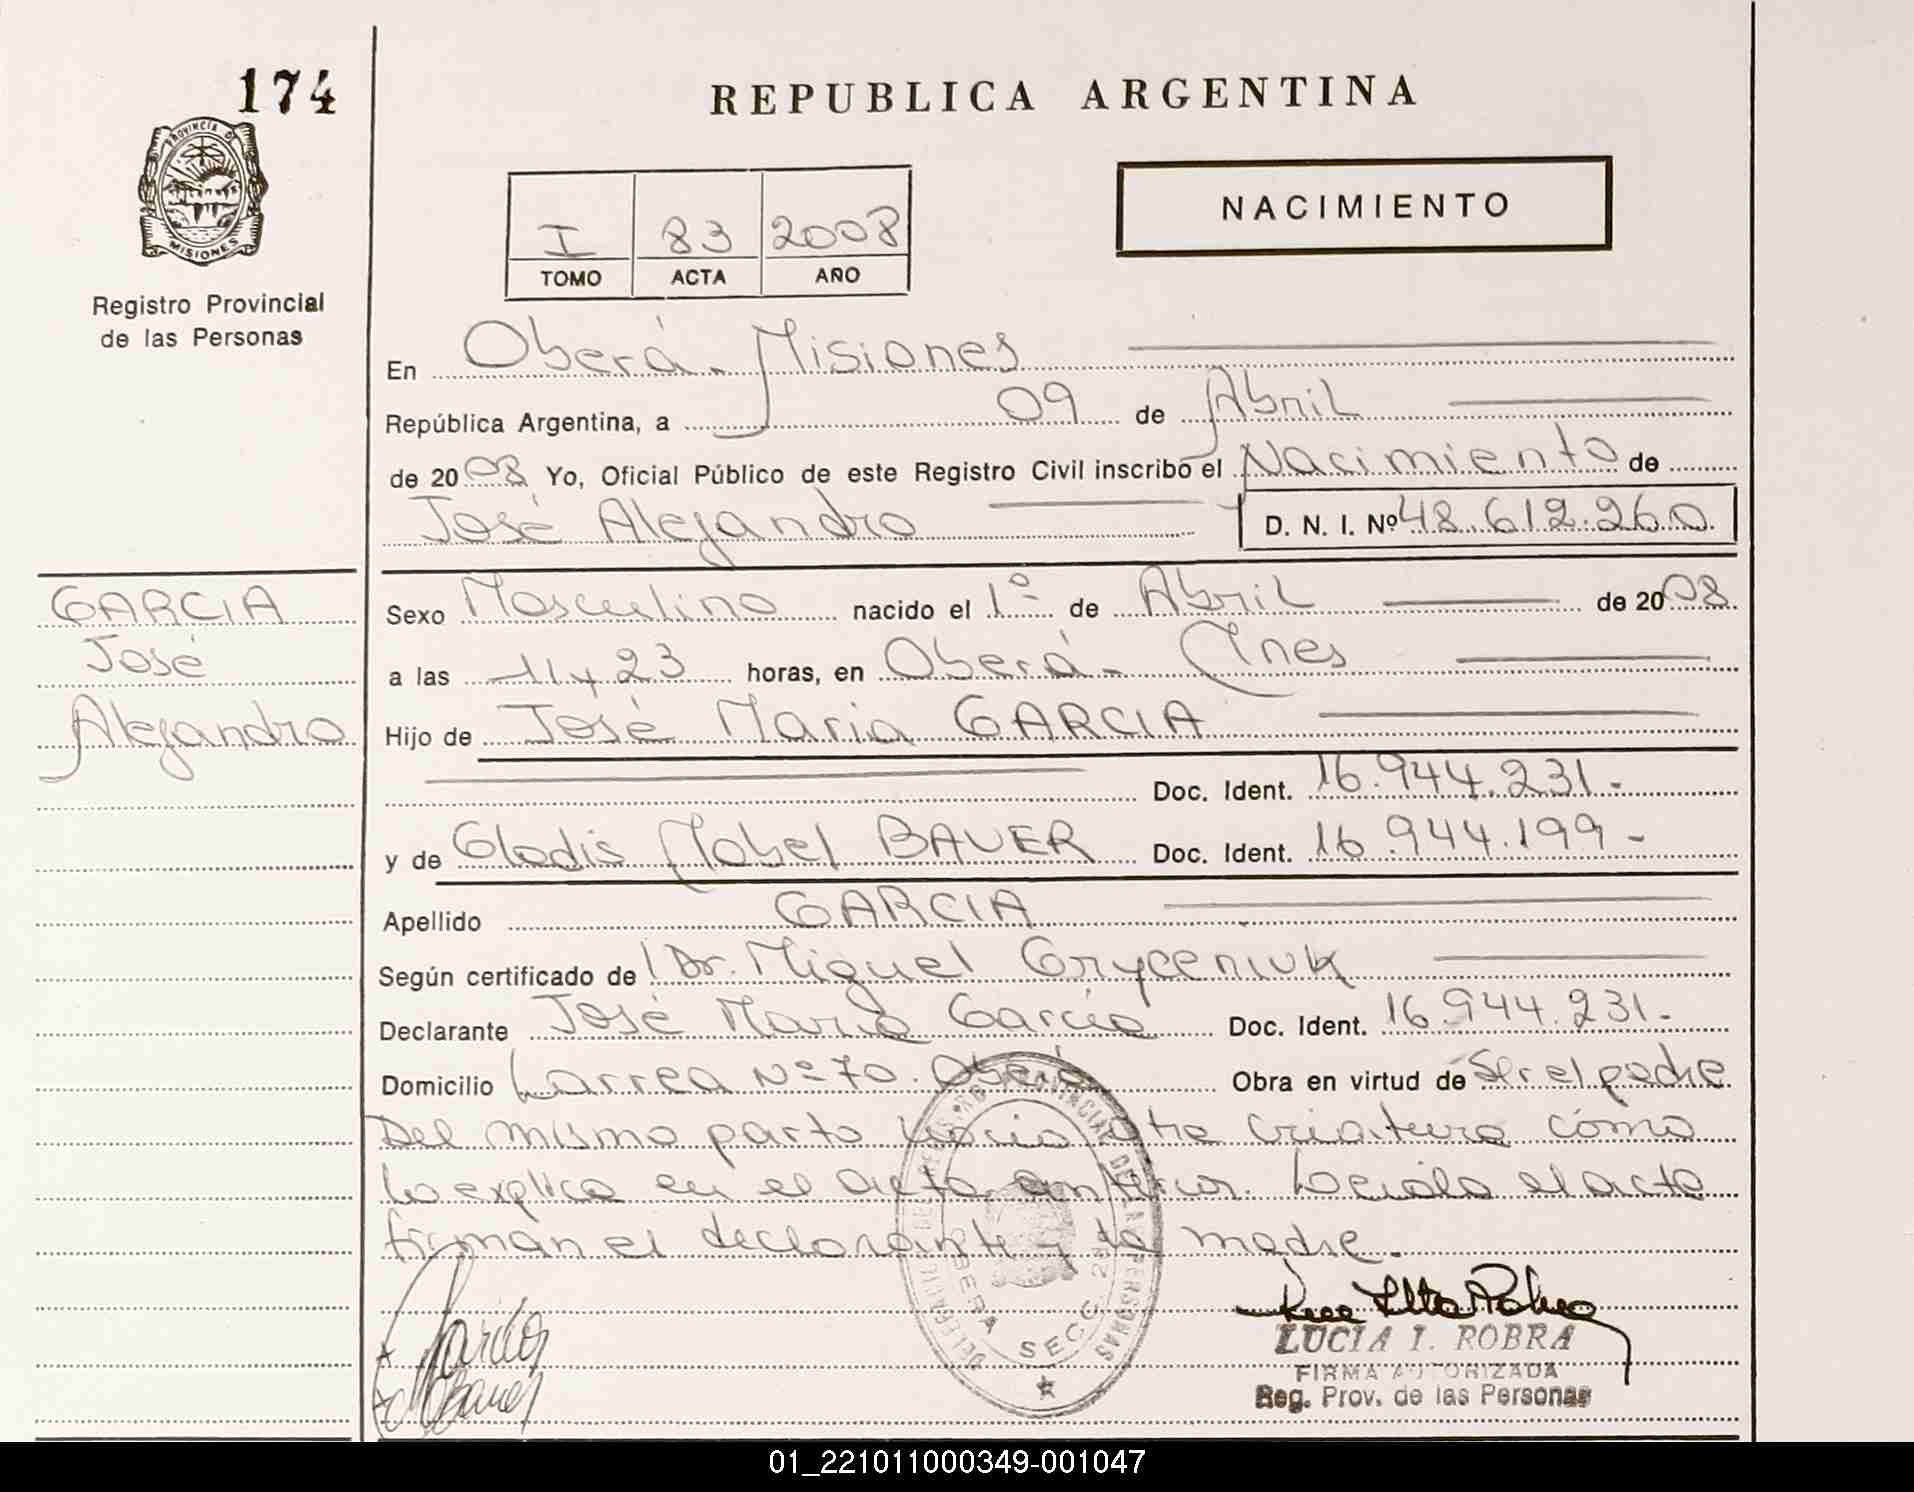 174
REPUBLICA ARGENTINA
PROVINCIA D
MISIONES
Registro Provincial
de las Personas
I 83 2008
TOMO ACTA AÑO
NACIMIENTO
En Oberá - Misiones
República Argentina, a 09 de Abril
de 2008 Yo, Oficial Público de este Registro Civil inscribo el Nacimiento de
José Alejandro D. N. I. Nº 48.612.260.
GARCIA
José
Alejandro
Sexo Masculino nacido el 1º de Abril de 2008.
a las 11 y 23 horas, en Oberá - Mnes
Hijo de José Maria GARCIA
Doc. Ident. 16.944.231.-
y de Gladis Mabel BAUER Doc. Ident. 16.944.199-
Apellido GARCIA
Según certificado de Dr. Miguel Gryceniuk
Declarante José Maria Garcia Doc. Ident. 16.944.231.-
Domicilio Larrea Nº 70. Oberá Obra en virtud de Ser el padre
Del mismo parto nacio otra criatura cómo
lo explica en el acta anterior. Leida el acta
firman el declarante y la madre.
Bauer
DELEGACION DEL REGISTRO PROVINCIAL DE LAS PERSONAS
OBERA SECC. 2ª
LUCIA I. ROBRA
FIRMA AUTORIZADA
Reg. Prov. de las Personas
01_221011000349-001047